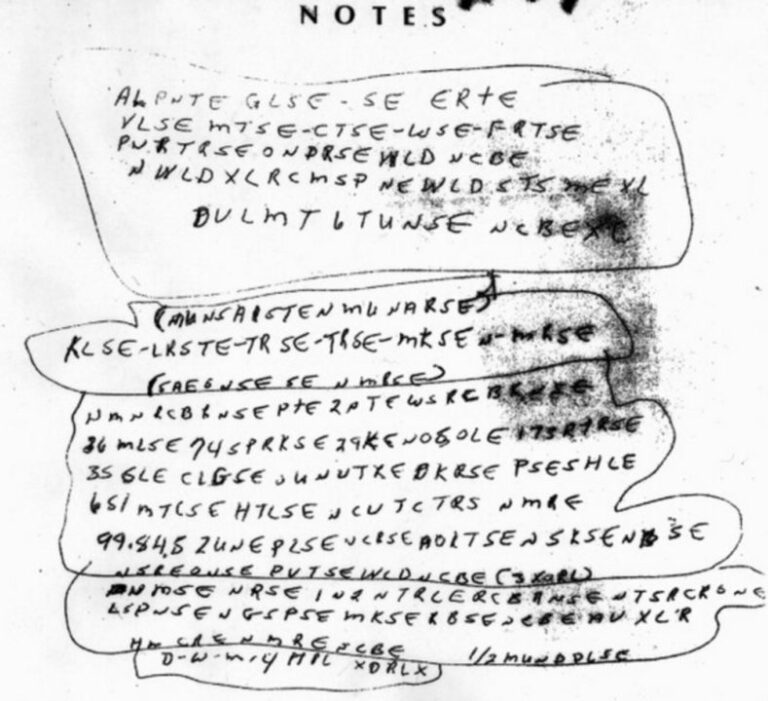 NOTES
ALPNTE GLSE-SE ERTE
VLSE MTSE-CTSE-WSE-FRTSE
PURTRSEONDRSEWLD NCBE
NWLDXLRCMSP NEWLDSTS MEXL
DULMT 6TUNSE NCBEXC
(MUNSAISTENMUNARSE)
KLSE-LRSTE-TRSE-TRSE-MKSEN-MRSE
(SAEGNSE SE NMRSE)
NMNRCBRNSEPTE2PTEWSRCBRNSE
36 MLSE 74SPRKSE 29KENOSOLE 173RTRSE
35 GLE CLGSE UNUTXE DKRSE PSESHLE
651 MTCSE HTLSE NCUTCTRS NMRE
99.84.5 2UNEPLSE NCRSE AOLTSE NSKSENBSE
NSREONSE PUTSEWLDNCBE (3XORL)
NRSE IN2NTRLERCBRNSE NTSRCRONE
LSPNSENGSPSE MKSERBSENCBE AV XL'R
HM CRE NMRE NCBE 1/2MUNDDLSE
D-W-M-4 MIL XDRLX